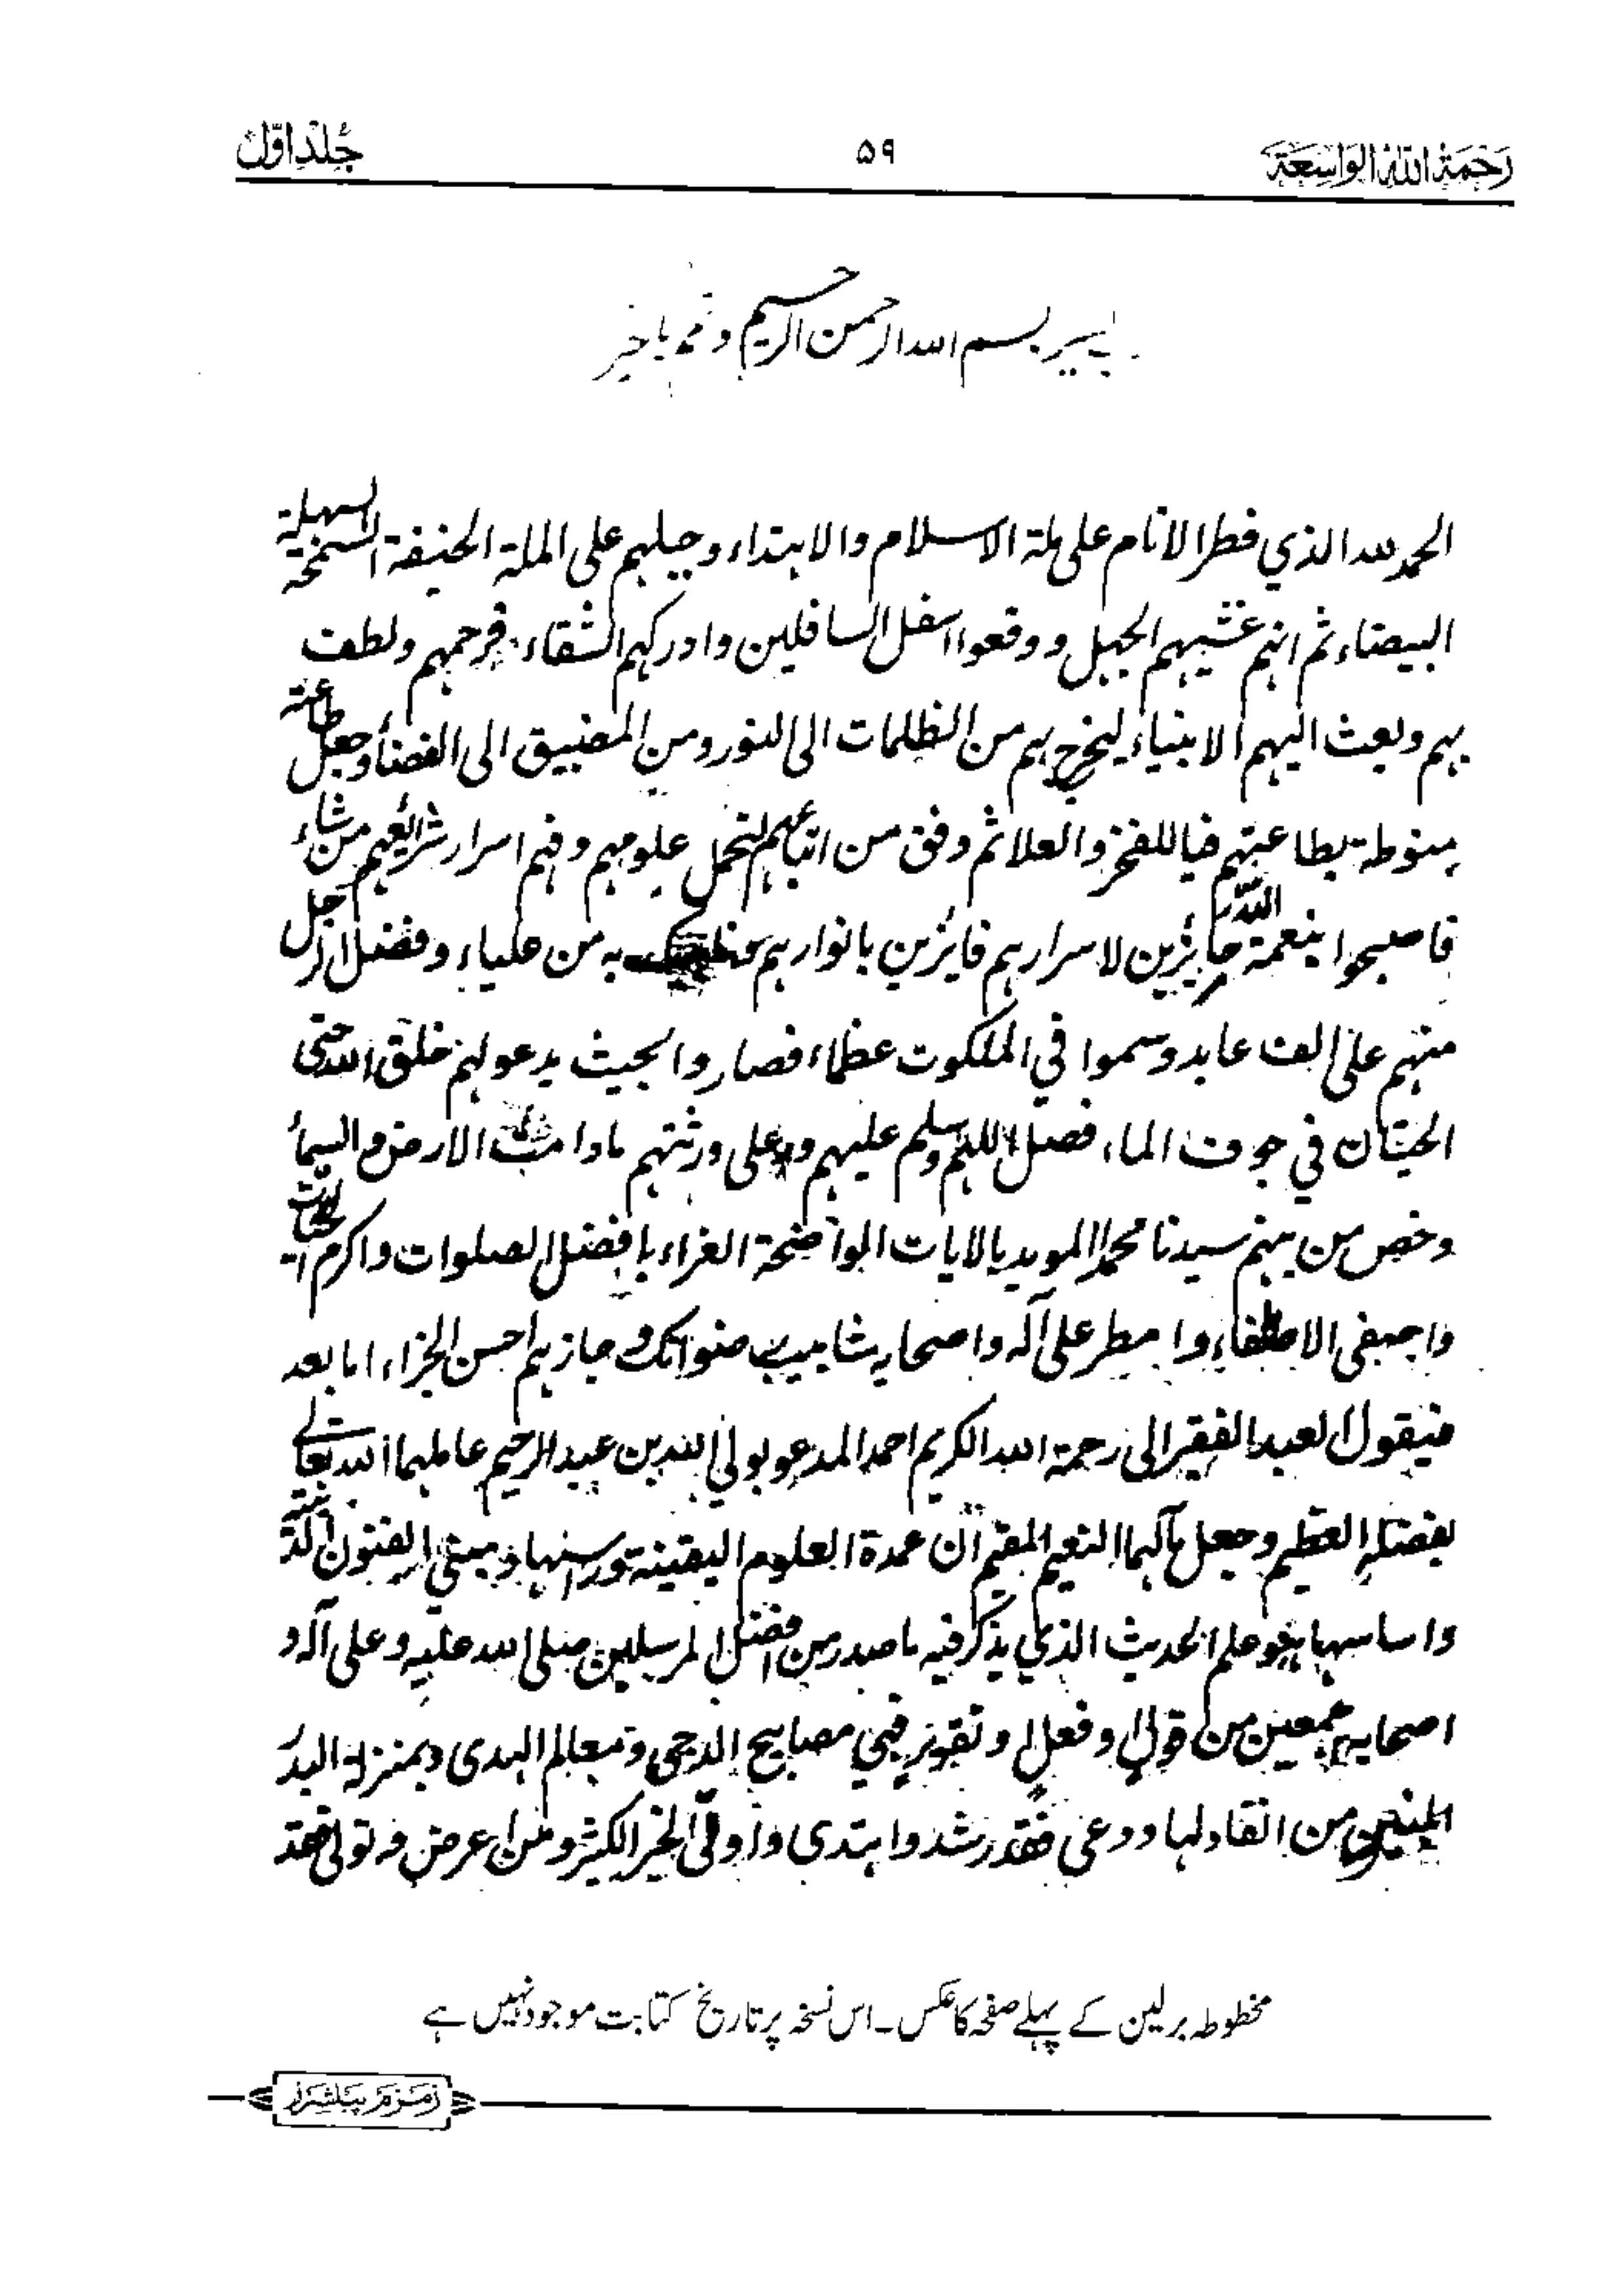 رَحمَةُ اللهِ الوَاسِعَة ۵۹ جُلدِ اوّل
يسر بسم الله الرحمن الرحيم وتمم بالخير
الحمد لله الذي فطر الانام على ملة الاسلام والاهتداء وجبلهم على الملة الحنيفة السمحة السهلة
البيضاء ثم انهم غشيهم الجهل ووقعوا اسفل السافلين وادركهم الشقاء فرحمهم ولطف
بهم وبعث اليهم الانبياء ليخرج بهم من الظلمات الى النور ومن المضيق الى الفضاء وجعل طاعته
منوطة بطاعتهم فيا للفخر والعلا ثم وفق من اتباعهم لتحمل علومهم وفهم اسرار شرايعهم من شاء
فاصبحوا بنعمة الله حايزين لاسرارهم فايزين بانوارهم به من علياء وفضل الرجل
منهم على الف عابد وسموا في الملكوت عظماء فصاروا بحيث يدعو لهم خلق الله حتى
الحيتان في جوف الماء فصل اللهم وسلم عليهم وعلى ورثتهم مادامت الارض والسماء
وخص من بينهم سيدنا محمدا المويد بالايات الواضحة الغراء بافضل الصلوات واكرم التحيات
واصفى الاصطفاء وامطر على آله واصحابه شابيب رضوانك وجازهم احسن الجزاء اما بعد
فيقول العبد الفقير الى رحمة الله الكريم احمد المدعو بولي الله بن عبد الرحيم عاملهما الله تعالى
بفضله العظيم وجعل مآلهما النعيم المقيم ان عمدة العلوم اليقينية وراسها ومبنى الفنون الدينية
واساسها هو علم الحديث الذي يذكر فيه ما صدر من افضل المرسلين صلى الله عليه وعلى آله و
اصحابه اجمعين من قول او فعل او تقرير فهي مصابيح الدجى ومعالم الهدى وبمنزلة البدر
المنير من انقاد لها ووعى فقد رشد واهتدى واوتي الخير الكثير ومن اعرض وتولى فقد
مخطوطہ برلین کے پہلے صفحہ کا عکس۔ اس نسخہ پر تاریخ کتابت موجود نہیں ہے
زمزم پبلشرز